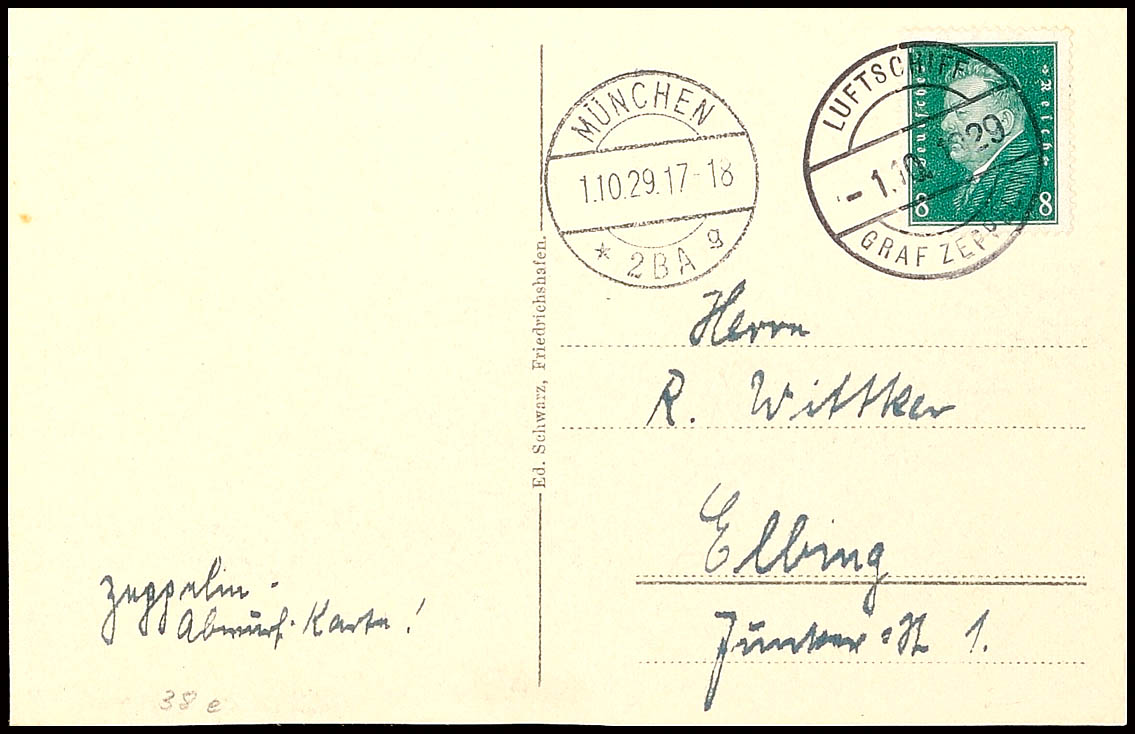 MÜNCHEN
1.10.29.17-18
* 2BA g
LUFTSCHIFF
- 1.10.1929
GRAF ZEPP
Deutsches Reich
8 8
Ed. Schwarz, Friedrichshafen.
Herrn
R. Wittker
Elbing
Junker=St 1.
Zeppelin-
Abwurf-Karte!
38 e